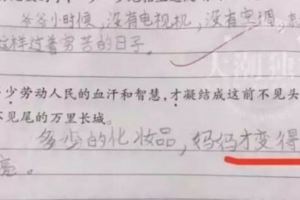 爷爷小时候，没有电视机，没有空调，
这样过着穷苦的日子。
少劳动人民的血汗和智慧，才凝结成这前不见头
不见尾的万里长城。
多少的化妆品，妈妈才变得
亮。